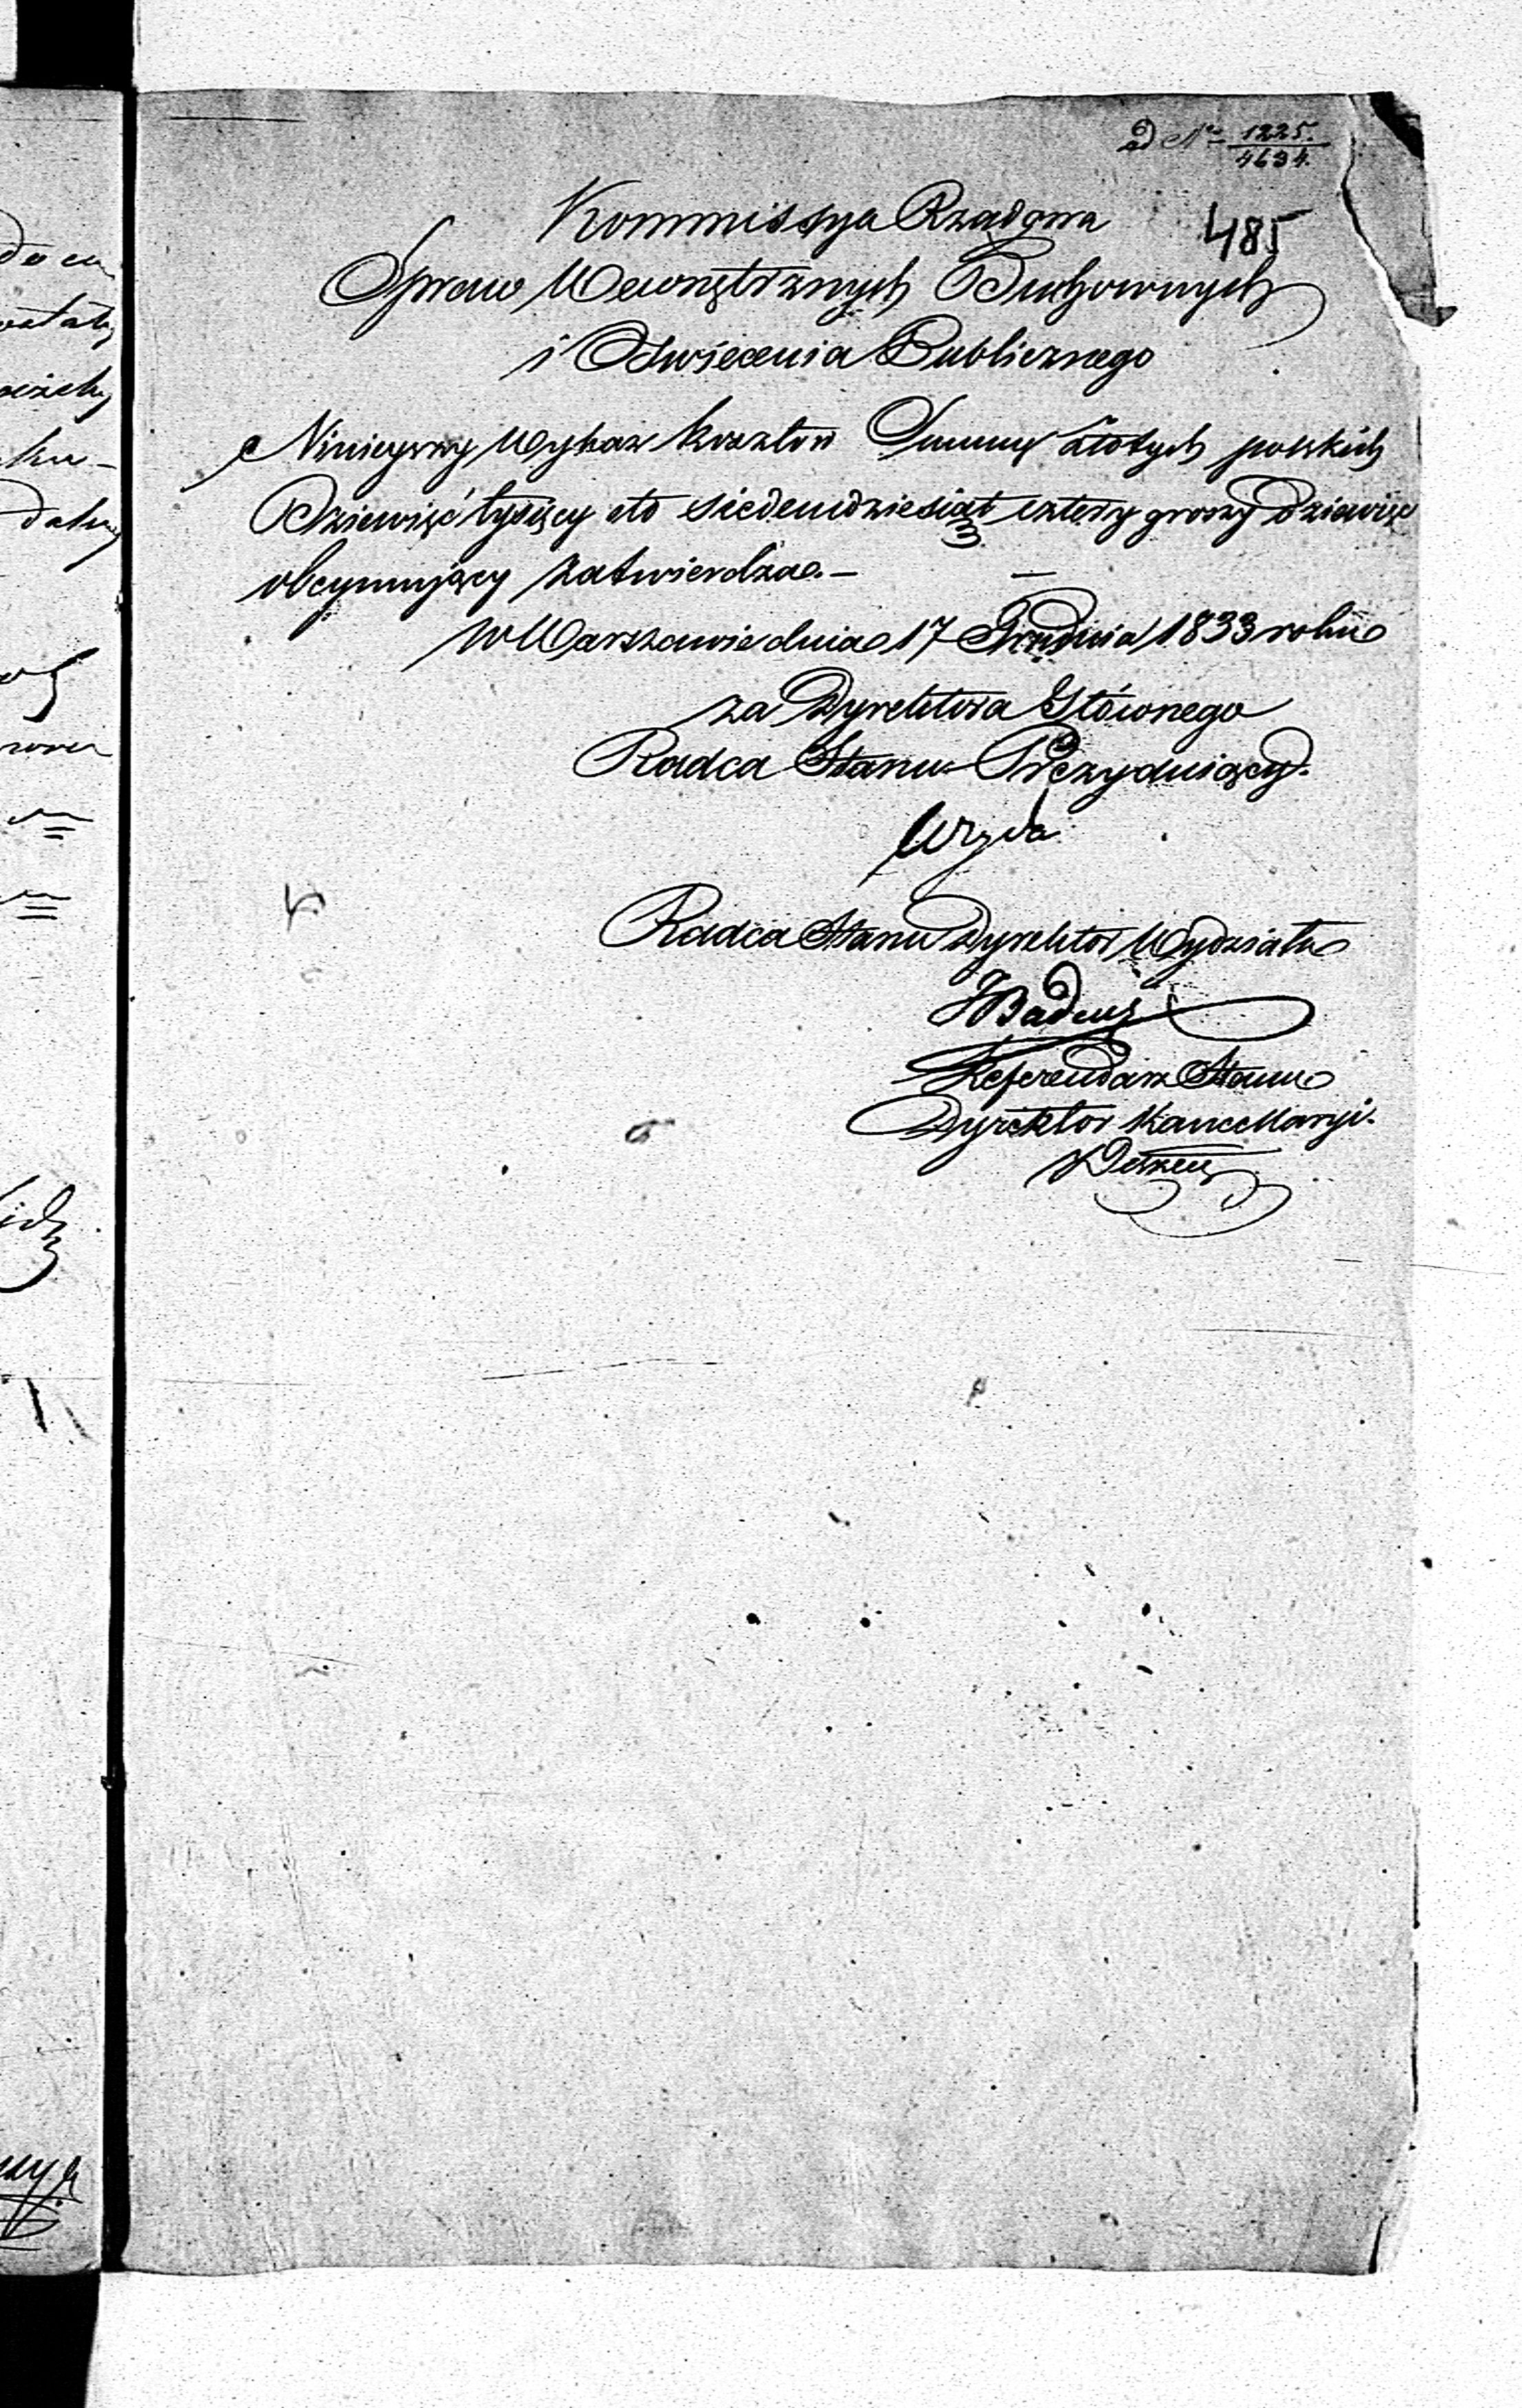 ad No 1225.
4634.
485
Kommissya Rządowa
Spraw Wewnętrznych Duchownych
i Oświecenia Publicznego
Ninieyszy Wykaz kosztów Summę złotych polskich
Dziewięć tysięcy sto siedemdziesiąt cztery groszy dziewięć
obeymujący zatwierdza. –
W Warszawie dnia 17 Grudnia 1833 roku
za Dyrektora Głównego
Radca Stanu Prezyduiący.
Radca Stanu Dyrektor Wydziału
Referendarz Stanu
Dyrektor Kancellaryi.